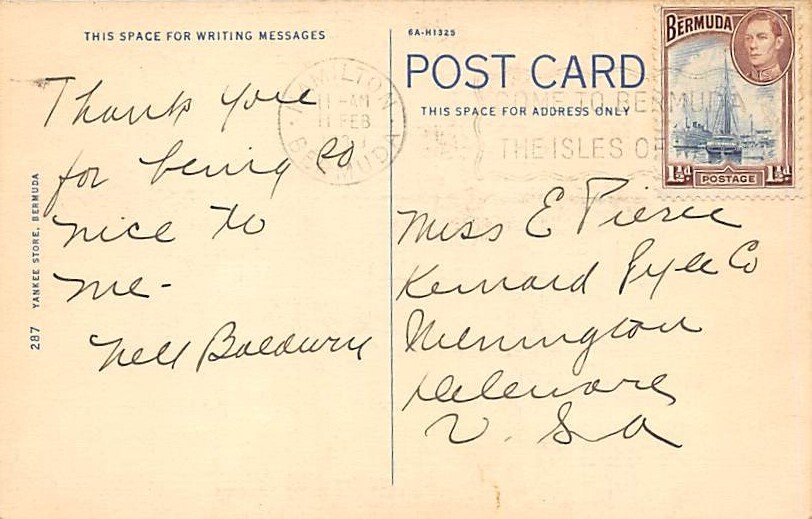 THIS SPACE FOR WRITING MESSAGES
Thank you
for being so
nice to
me-
Nell Baldwin
287 YANKEE STORE, BERMUDA
6A-H1325
POST CARD
THIS SPACE FOR ADDRESS ONLY
HAMILTON
11-AM
11 FEB
BERMUDA
COME TO BERMUDA
THE ISLES OF
BERMUDA
1½d. POSTAGE 1½d.
Miss E Pierce
Kennard Pyle Co
Wilmington
Deleware
U.S.A